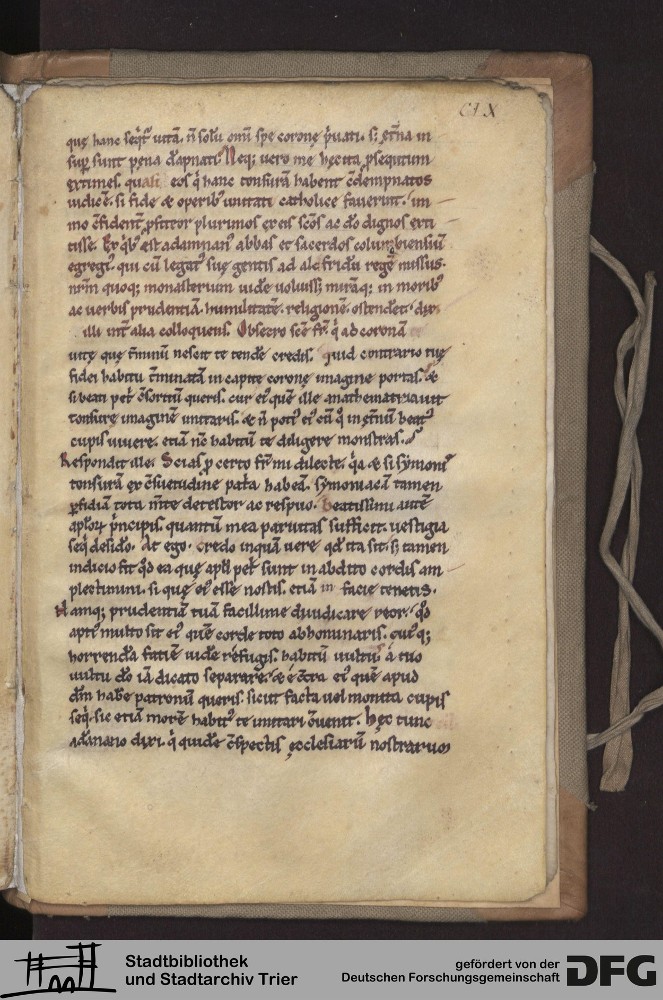 CLX
quę hanc seq̄t᷑ uitā. n̄ solū omi spe coronę p̲uati. s; et̄na in
sup̲ sunt pęna dāpnati. Neq; uero me hęc ita p̲sequtum
ęxtimes. quasi eos q̲ hanc tonsurā habent ↄ̄dempnatos
iudicē. si fidē & operib᷒ unitati catholicę fauerint. im
mo ↄ̄fident᷑ p̲fiteor plurimos ex eis sc̄os ac dō dignos exti
tisse. Ex q̲b᷒ ē adamnan᷒ abbas et sacerdos columbiensiū
egregi᷒. qui cū legat᷒ suę gentis ad alcfridū regē missus.
nr̄m quoq; monasterium uidē uoluiss; mirāq; in morib᷒
ac uerbis prudentiā. humilitatē. religionē. ostendet. dixi
illi int̄ alia colloquens. Obsecro scē fr̄. q̲ ad coronā
uitę quę t̄minū nescit te tendē credis. quid contrario tuę
fidei habitu t̄minatā in capite coronę imaginē portas. &
si beati pet̲ ↄ̄sortiū queris. cur ei᷒ quē ille anathematizauit
tonsurę imaginē imitaris. & n̄ poti᷒ ei᷒ cū q̲ in et̄nū beat᷒
cupis uiuere. etiā nc̄ habitū te diligere monstras.
Respondit ille. Scias p̲ certo fr̄ mi dilecte. q̲a & si symonis
tonsurā ex ↄ̄suetudine pat̲a habeā. symoniacā tamen
p̲fidiā tota m̄te detestor ac respuo. beatissimi autē
aplo⁊ p̲ncipis. quantū mea paruitas sufficit. uestigia
seq̲ desidō. At ego. credo inquā uere qđ ita sit. s; tamen
indicio fit q̲d ea quę apłi pet̲ sunt in abdito cordis am
plectimini. si quę ei᷒ esse nostis. etiā in facie tenetis.
Namq; prudentiā tuā facillime diiudicare reor. q̲d
apti᷒ multo sit ei᷒ quē corde toto abhominaris. cui᷒q;
horrendā faciē uidē refugis. habitū uultus a tuo
uultu dō iā dicato separare. & ē ↄ̄t̲a ei᷒ quē apud
dm̄ habē patronū queris. sicut facta uel monita cupis
seq̲. sic etiā morē habit᷒ te imitari ↄ̄uenit. Hęc tunc
adānano dixi. q̲ quidē ↄ̄spectis ęcclesiarū nostrarum
Stadtbibliothek
und Stadtarchiv Trier
gefördert von der
Deutschen Forschungsgemeinschaft
DFG